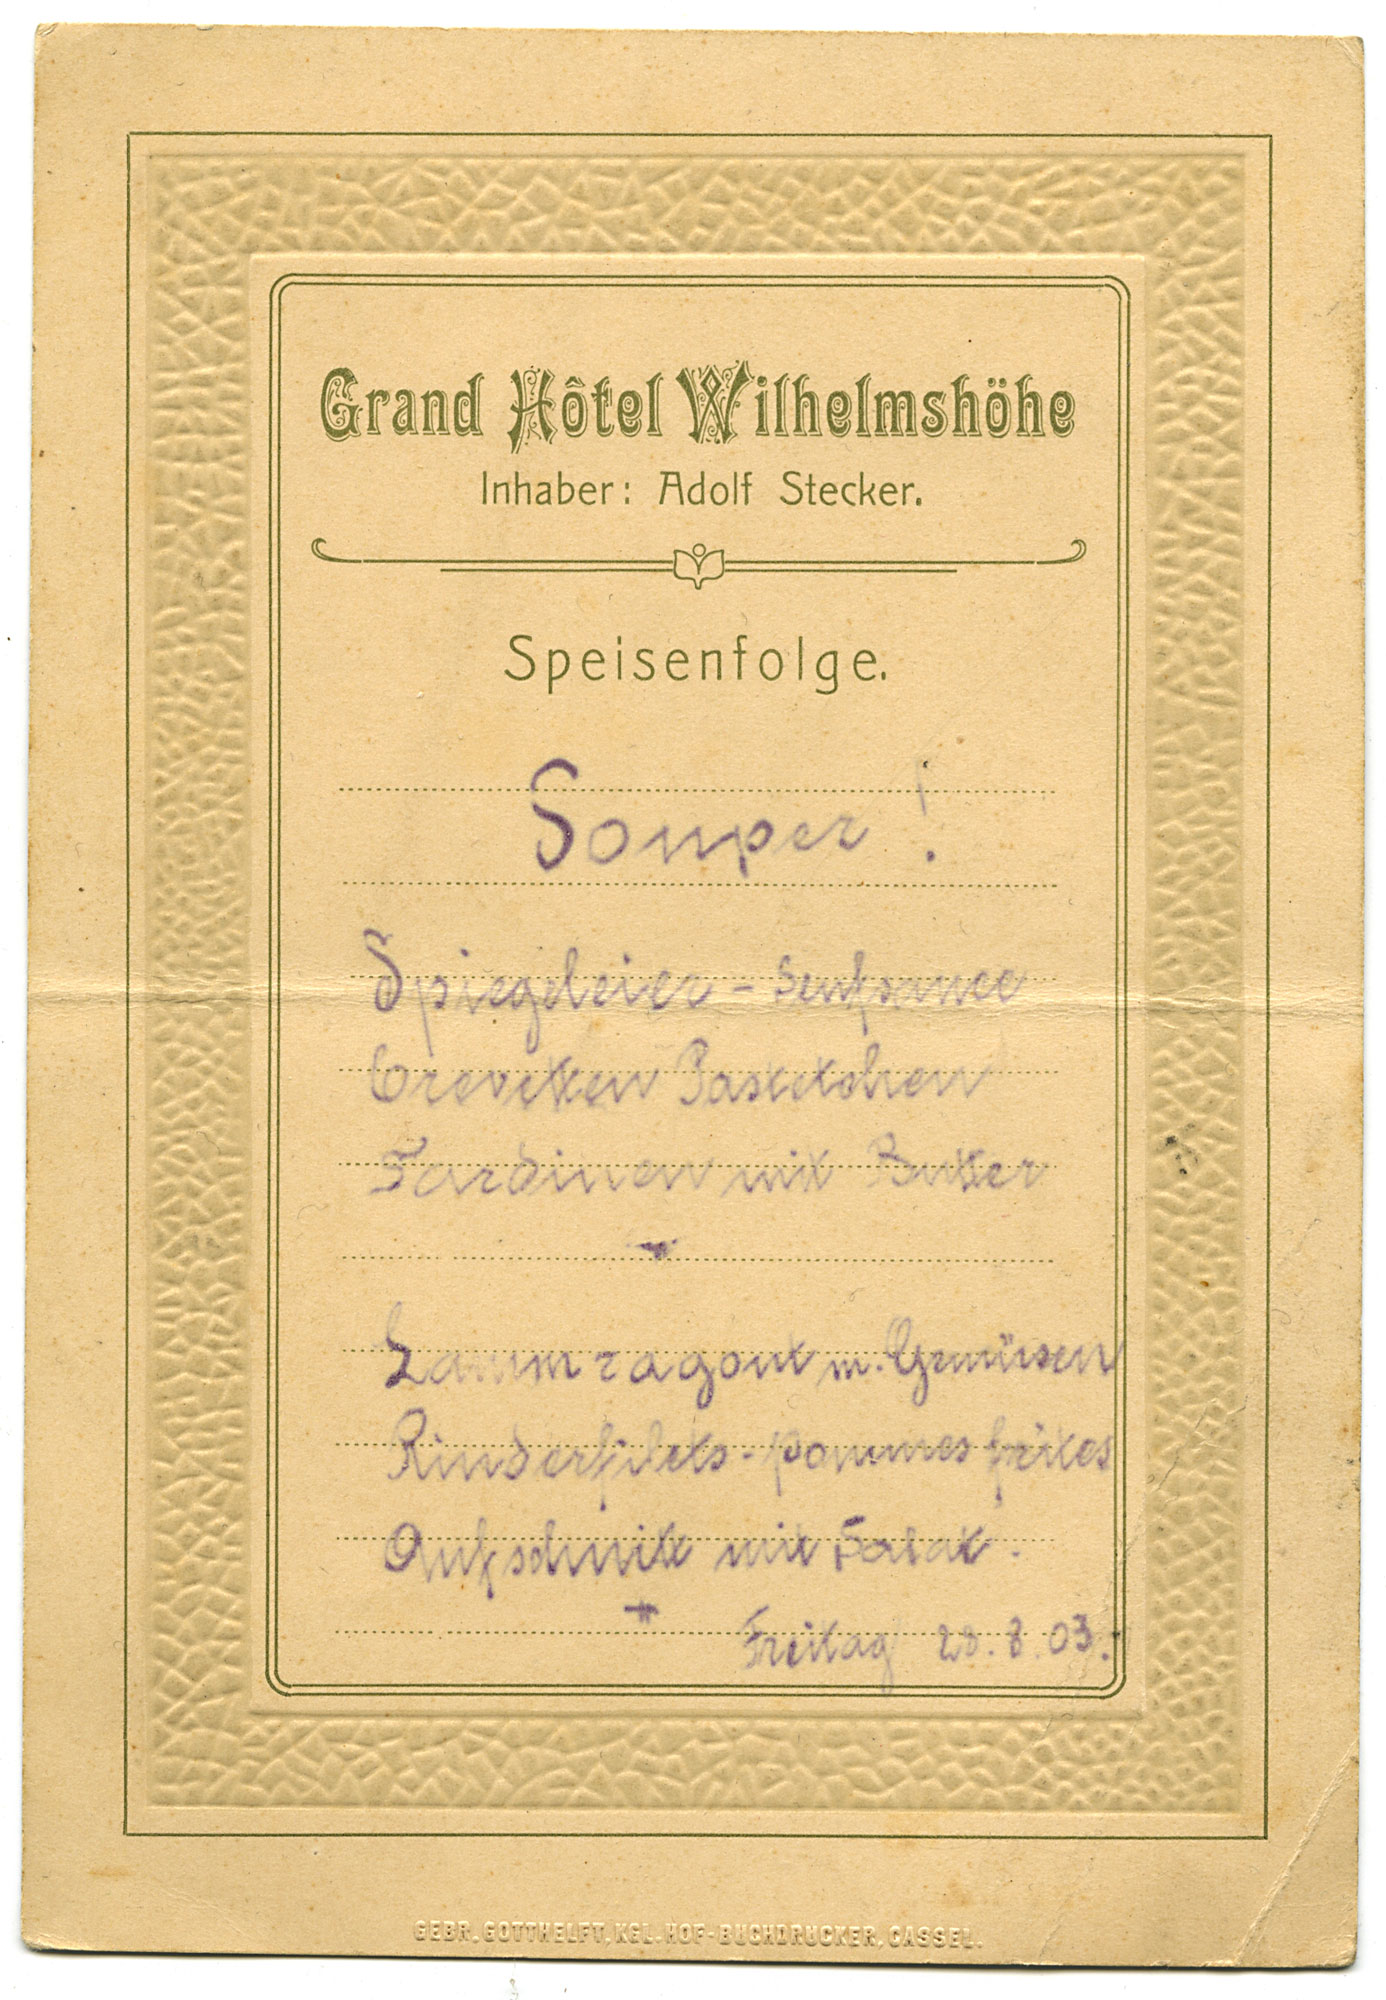 Grand Hôtel Wilhelmshöhe
Inhaber: Adolf Stecker.
Speisenfolge.
Souper!
Spiegeleier - Senfsauce
Crevetten Pastetchen
Sardinen mit Butter
Lammragout m. Gemüsen
Rinderfilets - pommes frites
Aufschnitt mit Salat.
Freitag 28.8.03.
GEBR. GOTTHELFT, KGL. HOF-BUCHDRUCKER, CASSEL.